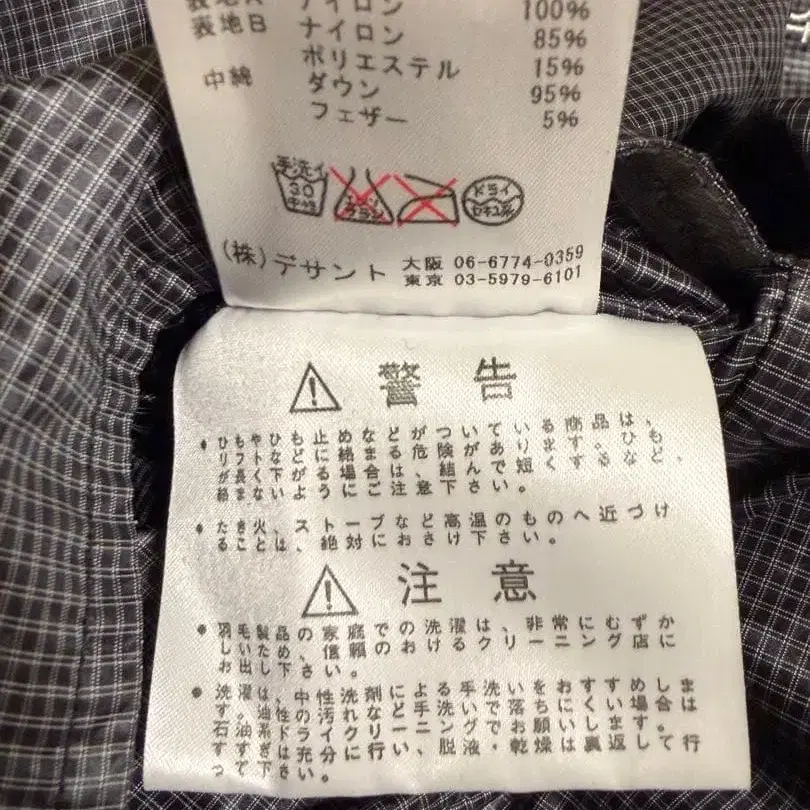 表地A ナイロン 100%
表地B ナイロン 85%
ポリエステル 15%
中綿 ダウン 95%
フェザー 5%
手洗イ
30
中性
エンソサラシ
ドライ
セキユ系
(株)デサント 大阪 06-6774-0359
東京 03-5979-6101
警告
• ひもやひも止めなどがついている商品は、
リフトなどに絡まる危険があります。ひも
が長く下がる場合は、結んで短くするなど、
絡まないようにご注意下さい。
• たき火、ストーブなど高温のものへ近づけ
ることは、絶対におさけ下さい。
注意
• 羽毛製品の家庭での洗濯は、非常にむずか
しいため、信頼のおけるクリーニング店に
お出し下さい。
• 洗濯は、中性洗剤による手洗いをおすすめしま
す。油性の汚れなど手洗いで落ちにくい場合は
石油系ドライクリーニングでお願いします。
すすぎは充分に行い、脱液・乾燥は裏返して行
って下さい。